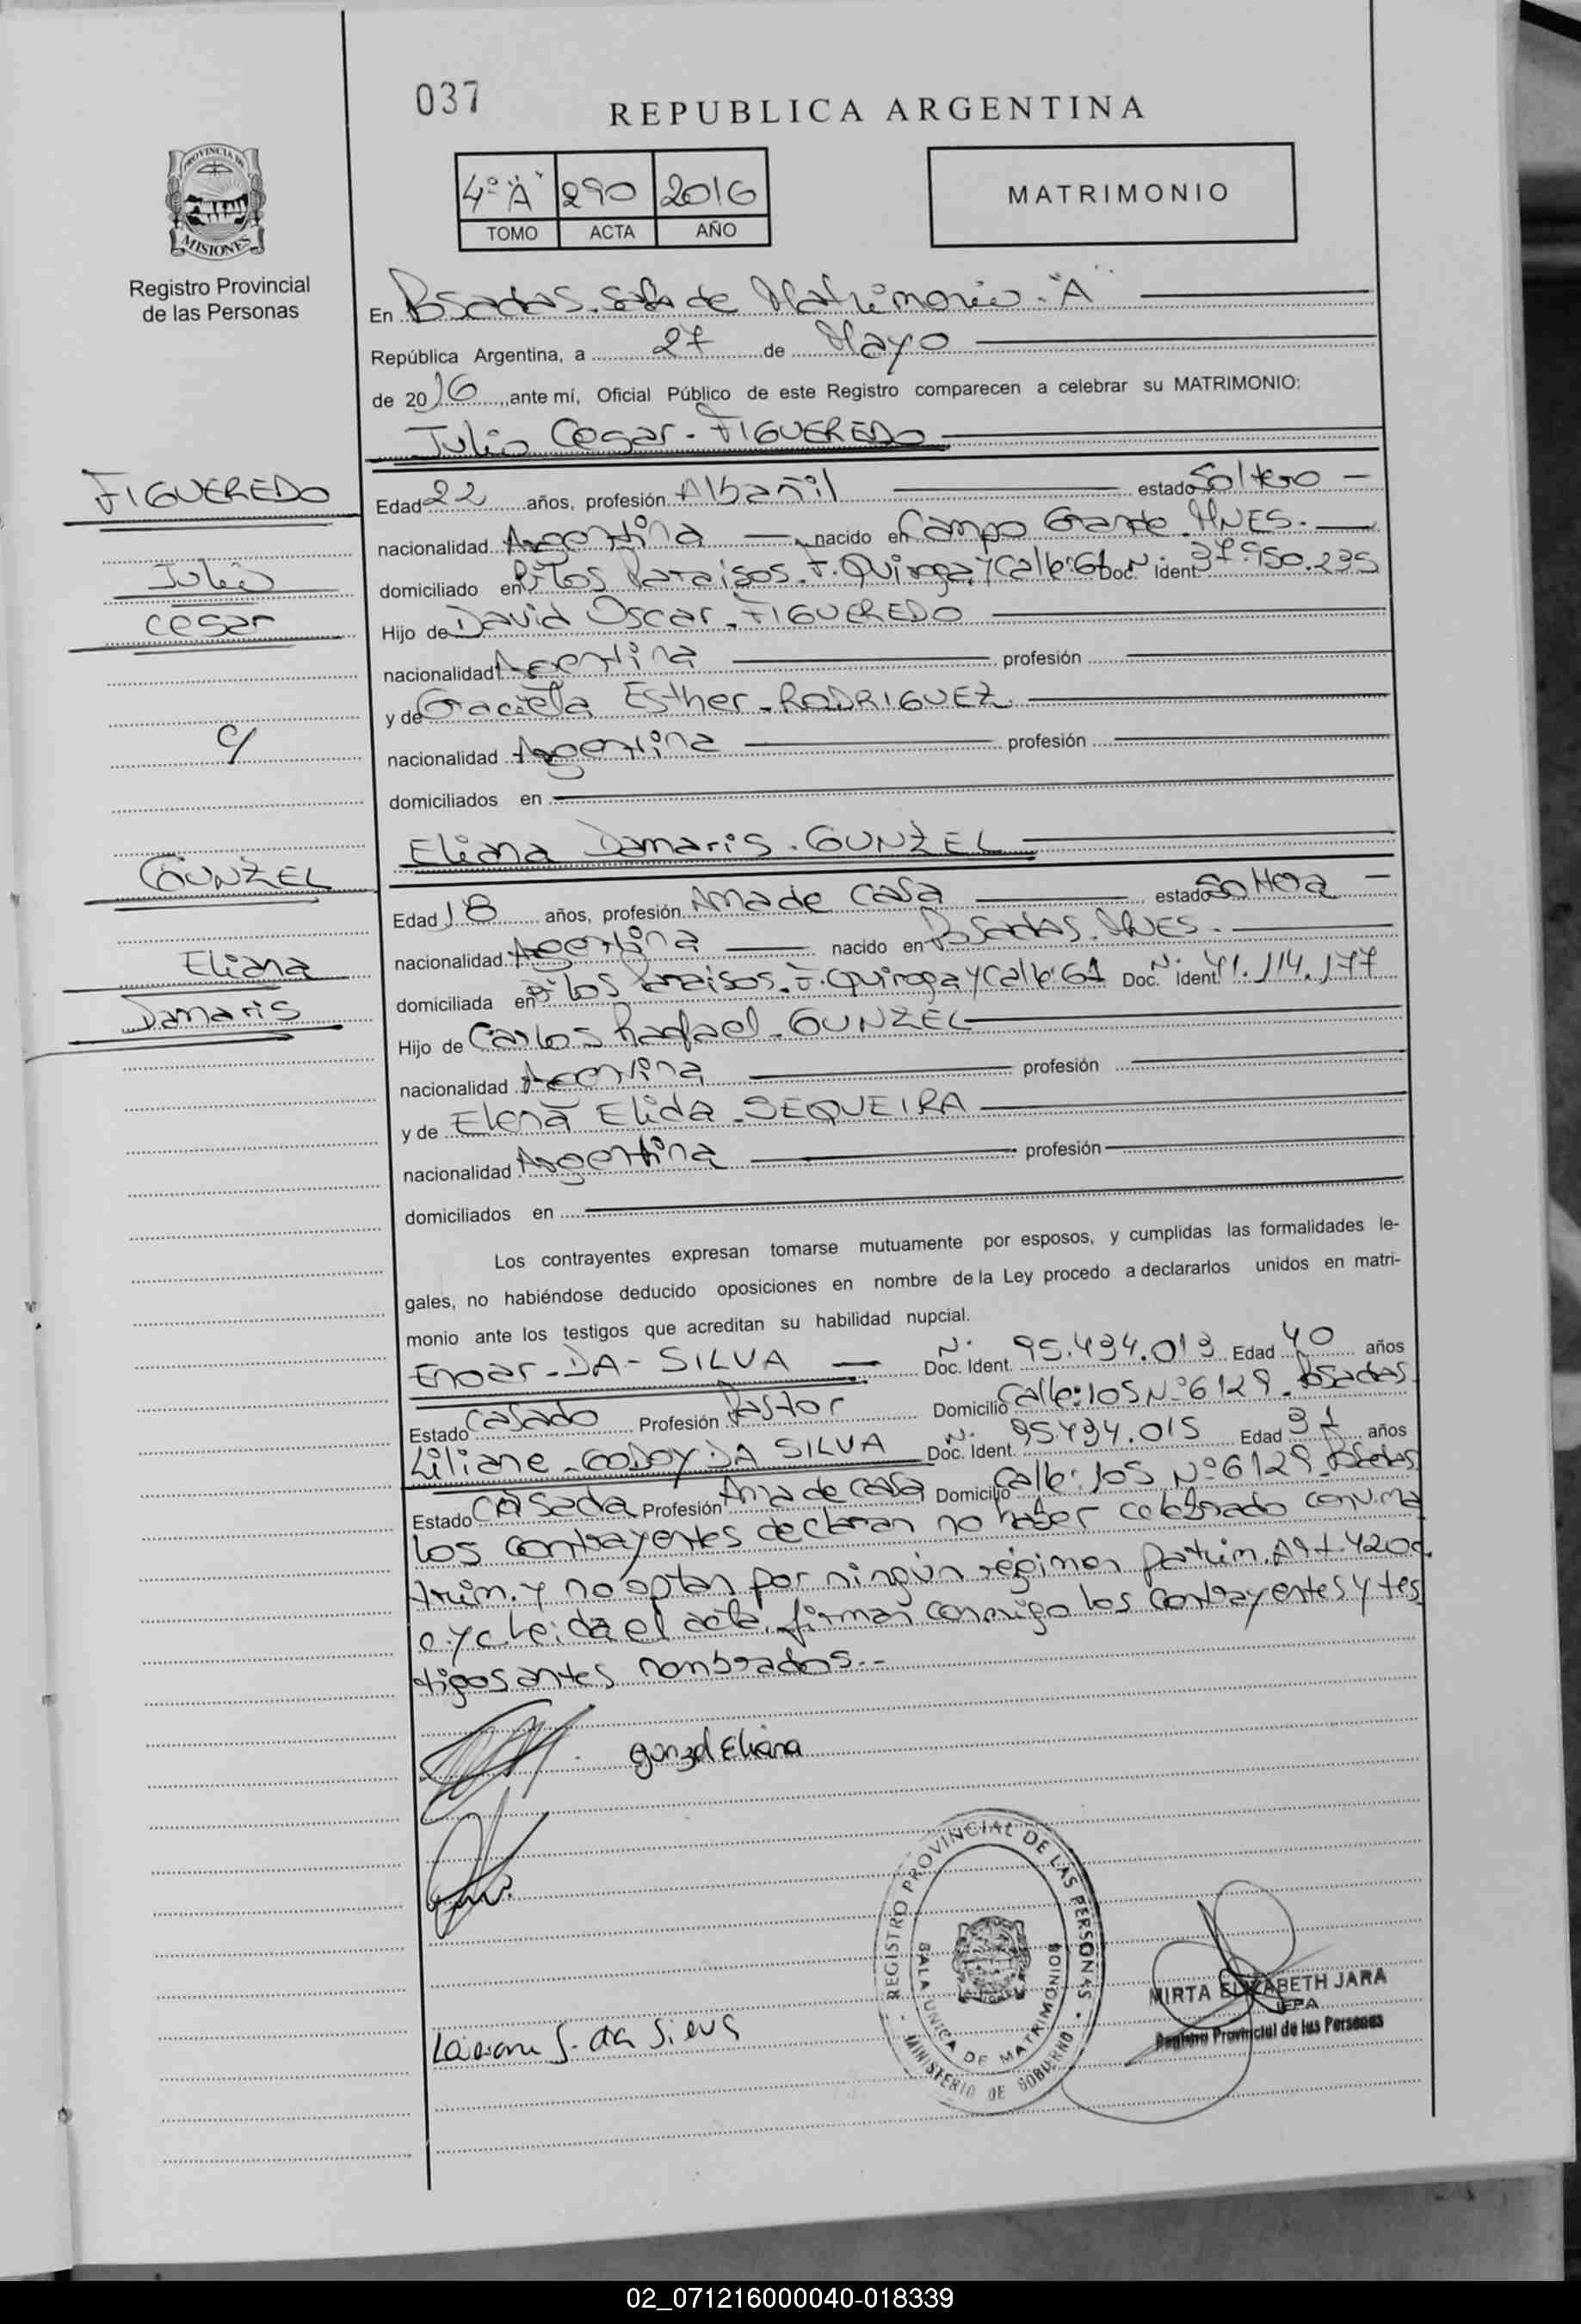 037
REPUBLICA ARGENTINA
4º "A" 290 2016
TOMO ACTA AÑO
MATRIMONIO
PROVINCIA DE
MISIONES
Registro Provincial
de las Personas
En Posadas. Sala de Matrimonio. "A"
República Argentina, a 27 de Mayo
de 2016, ante mí, Oficial Público de este Registro comparecen a celebrar su MATRIMONIO:
Julio Cesar - FIGUEREDO
FIGUEREDO
Julio
Cesar
c/
GUNZEL
Eliana
Damaris
Edad 22 años, profesión Albañil estado Soltero -
nacionalidad Argentina - nacido en Campo Grande. MNES. -
domiciliado en Bº Los Paraisos. F. Quiroga y Calle: 61 Doc. Nº Ident. 37.950.235
Hijo de David Oscar - FIGUEREDO
nacionalidad Argentina profesión
y de Graciela Esther - RODRIGUEZ
nacionalidad Argentina profesión
domiciliados en
Eliana Damaris - GUNZEL
Edad 18 años, profesión Ama de Casa estado Soltera -
nacionalidad Argentina nacido en Posadas. MNES. -
domiciliada en Bº Los Paraisos. F. Quiroga y Calle: 61 Doc. Nº Ident. 41.114.177
Hijo de Carlos Rafael - GUNZEL
nacionalidad Argentina profesión
y de Elena Elida - SEQUEIRA
nacionalidad Argentina profesión
domiciliados en
Los contrayentes expresan tomarse mutuamente por esposos, y cumplidas las formalidades le-
gales, no habiéndose deducido oposiciones en nombre de la Ley procedo a declararlos unidos en matri-
monio ante los testigos que acreditan su habilidad nupcial.
DA - SILVA Doc. Nº Ident. 95.434.013 Edad 40 años
Estado Casado Profesión Pastor Domicilio Calle: 105 Nº 6129. Posadas
Liliane - GODOY DA SILVA Doc. Nº Ident. 95.434.015 Edad años
Estado Casada Profesión Ama de Casa Domicilio Calle: 105 Nº 6129. Posadas
Los contrayentes declaran no haber celebrado conv. ma
trim. y no optan por ningún régimen patrim. Art. 420
Leída el acta, firman conmigo los contrayentes y tes
tigos antes nombrados.-
Gunzel Eliana
da Silva
REGISTRO PROVINCIAL DE LAS PERSONAS
SALA UNICA DE MATRIMONIOS
MINISTERIO DE GOBIERNO
MIRTA ELIZABETH JARA
JEFA
Registro Provincial de las Personas
02_071216000040-018339